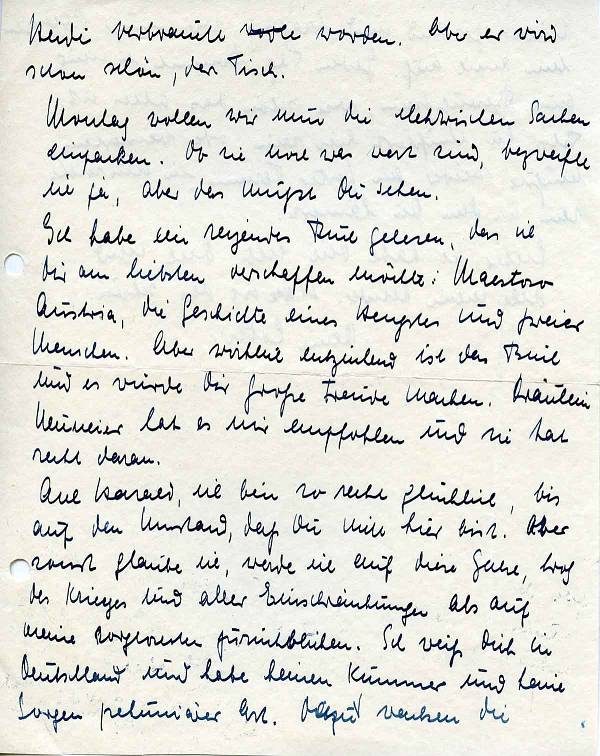 Heidi verbrannte worden. Aber er wird
schon schön, der Tisch.
Montag wollen wir nun die elektrischen Sachen
einpacken. Ob sie noch was wert sind, bezweifle
ich ja, aber das mußt Du sehen.
Ich habe ein reizendes Buch gelesen, das ich
Dir am liebsten verschaffen möchte: Maestoso
Austria, die Geschichte eines Hengstes und zweier
Menschen. Aber wirklich entzückend ist das Buch
und es würde Dir große Freude machen. Fräulein
Neumeier hat es mir empfohlen und sie hat
recht daran.
Ach Harald, ich bin so recht glücklich, bis
auf den Umstand, daß Du nicht hier bist. Aber
sonst glaube ich, werde ich auf diese Jahre, trotz
des Krieges und aller Einschränkungen als auf
meine sorglosesten zurückblicken. Ich weiß Dich in
Deutschland und habe keinen Kummer und keine
Sorgen pekuniärer Art. Dazu wachsen die